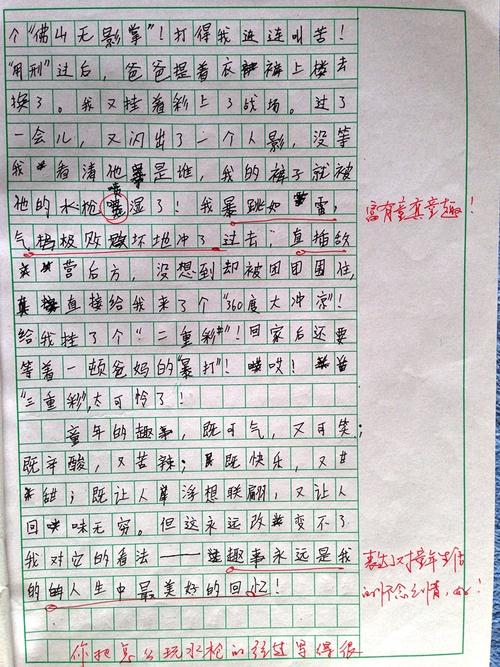 个“佛山无影掌”！打得我连连叫苦！
“用刑”过后，爸爸提着衣裤上楼去
换了。我又挂着彩上了战场。过了
一会儿，又闪出了一个人影，没等
我看清他是谁，我的裤子就被
他的水枪湿了！我暴跳如雷，
富有童真童趣！
气极败坏地冲了过去，直插敌
营后方，没想到却被团团围住，
直接给我来了个“360度大冲凉”！
给我挂了个“二重彩”！回家后还要
等着一顿爸妈的“暴打”！哎！
“三重彩”，太可怜了！
童年的趣事，既可气，又可笑；
既辛酸，又苦辣；既快乐，又甘
甜；既让人浮想联翩，又让人
回味无穷。但这永远改变不了
我对它的看法——趣事永远是我
表达了对童年生活
的人生中最美好的回忆！
的怀念之情，
你把怎么玩水枪的经过写得很